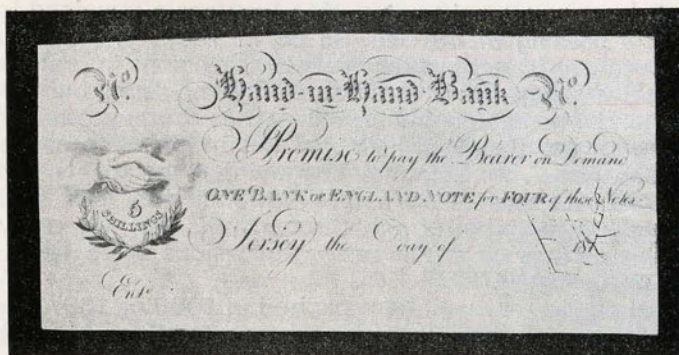 No. Hand-in-Hand Bank No.
I Promise to pay the Bearer on Demand
ONE BANK OF ENGLAND NOTE for FOUR of these Notes.
5
SHILLINGS
Jersey the Day of 18
Entd.